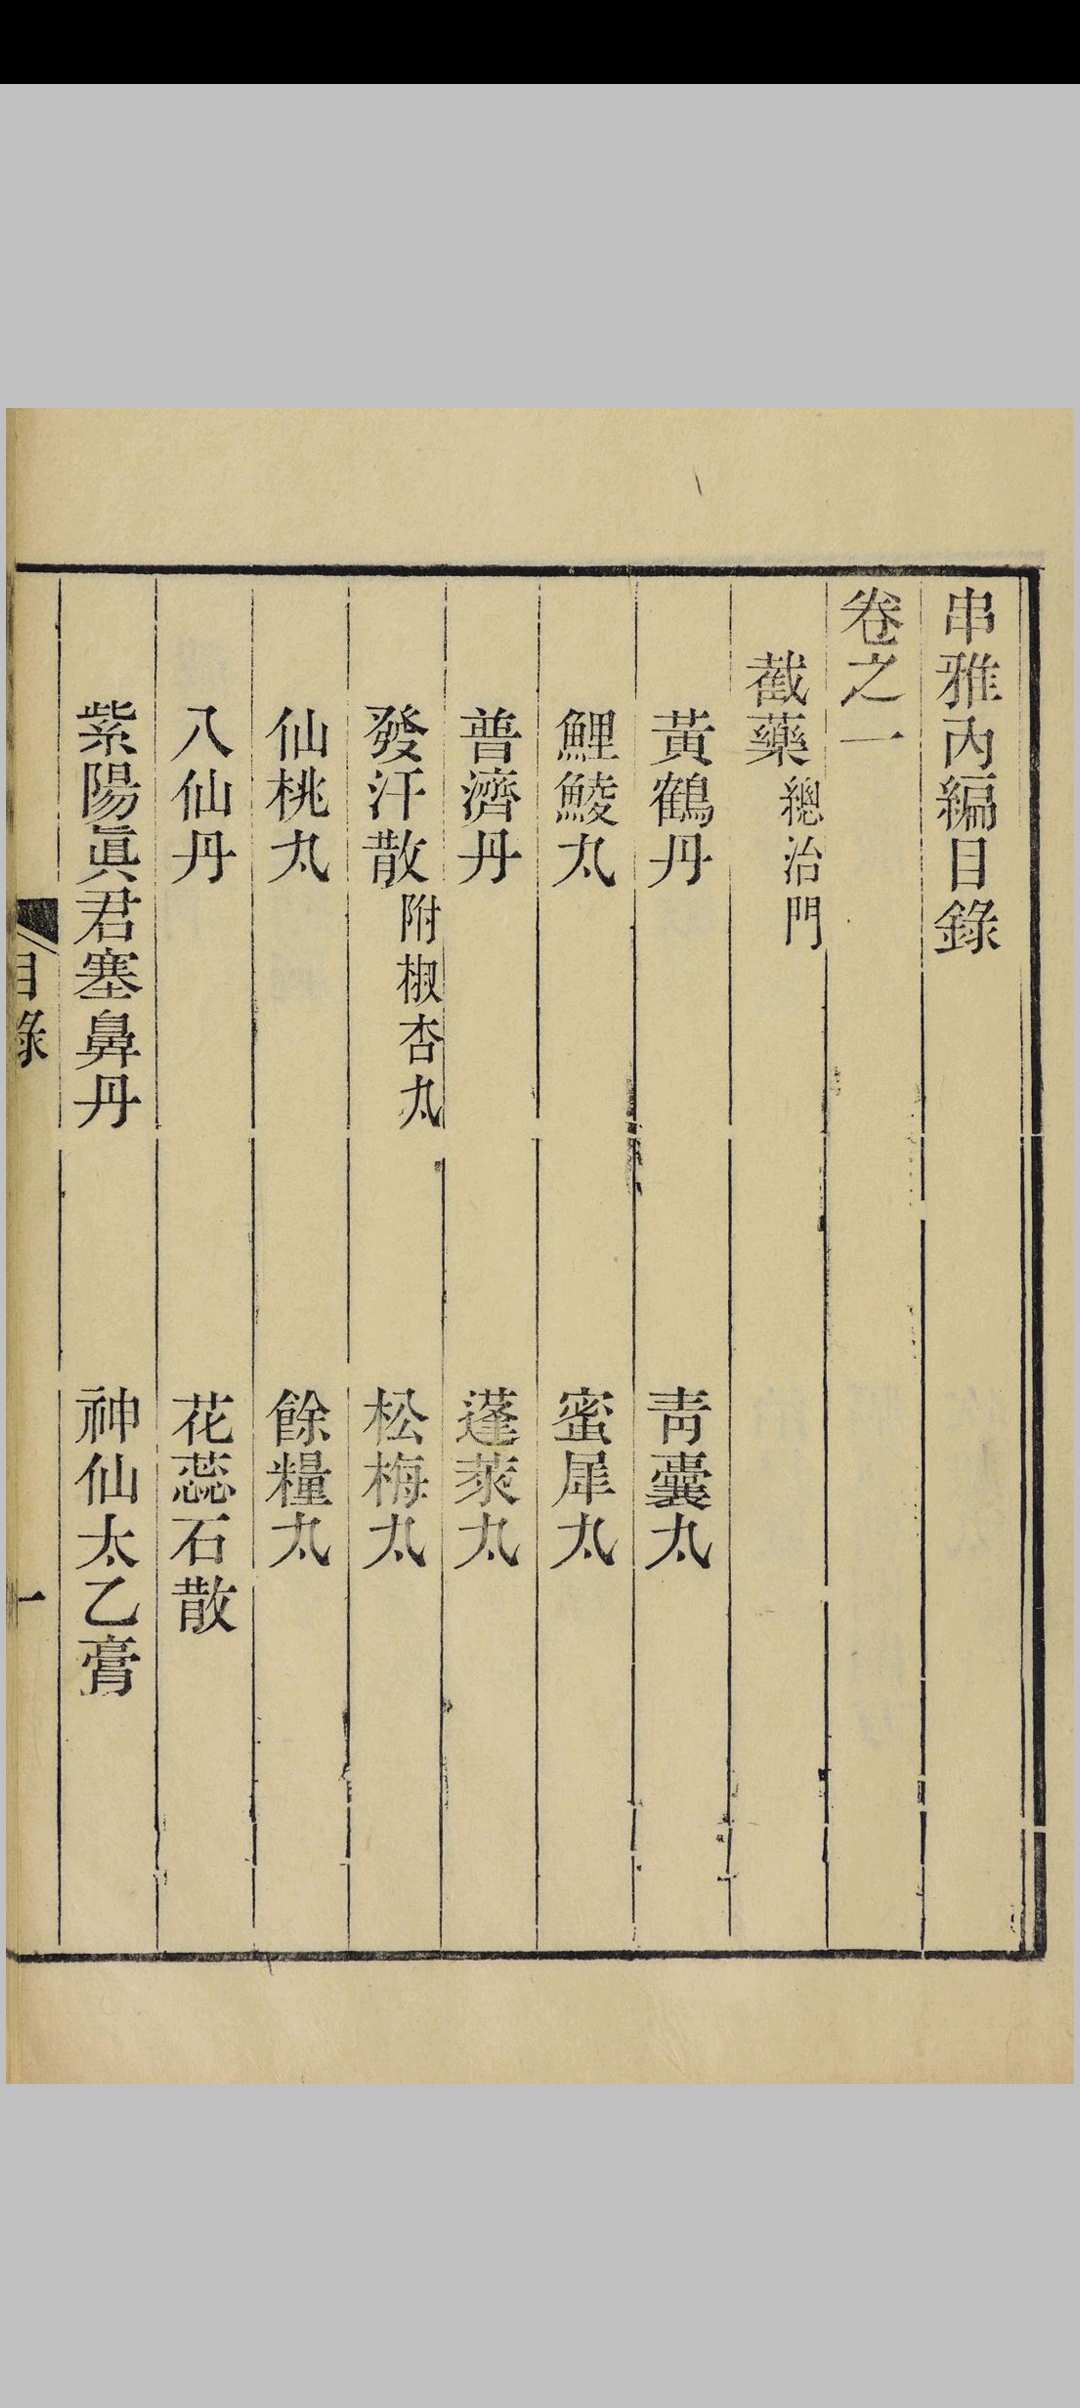 串雅內編目錄
卷之一
截藥 總治門
黃鶴丹 靑囊丸
鯉鯪丸 蜜犀丸
普濟丹 蓬萊丸
發汗散 附椒杏丸 松梅丸
仙桃丸 餘糧丸
八仙丹 花蕊石散
紫陽眞君塞鼻丹 神仙太乙膏
目錄 一